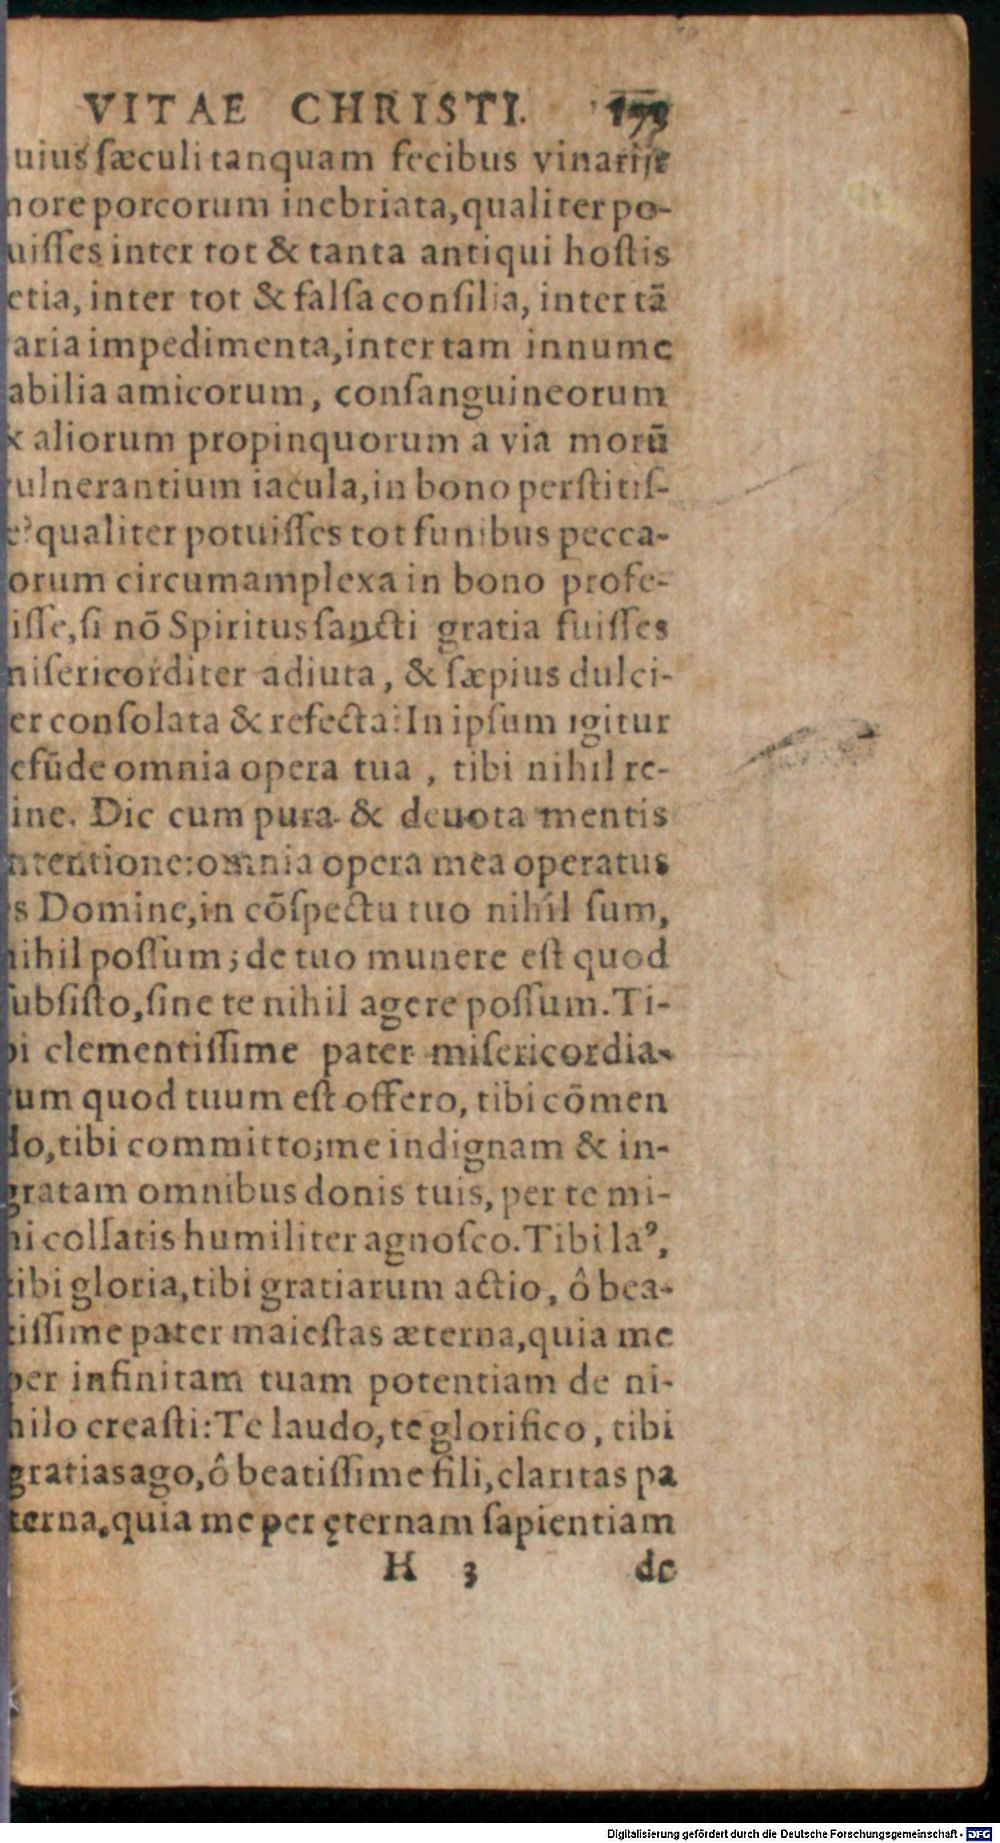 VITAE CHRISTI. 173
uius sæculi tanquam fecibus vinariis
nore porcorum inebriata, qualiter po-
uisses inter tot & tanta antiqui hostis
etia, inter tot & falsa consilia, inter tā
aria impedimenta, inter tam innume
abilia amicorum, consanguineorum
& aliorum propinquorum a via morū
ulnerantium iacula, in bono perstitis-
e? qualiter potuisses tot funibus pecca-
orum circumamplexa in bono profe-
isse, si nō Spiritus sancti gratia fuisses
nisericorditer adiuta, & sæpius dulci-
er consolata & refecta: In ipsum igitur
efūde omnia opera tua, tibi nihil re-
ine. Dic cum pura & deuota mentis
ntentione: omnia opera mea operatus
s Domine, in cōspectu tuo nihil sum,
nihil possum; de tuo munere est quod
subsisto, sine te nihil agere possum. Ti-
bi clementissime pater misericordia-
rum quod tuum est offero, tibi cōmen
do, tibi committo; me indignam & in-
gratam omnibus donis tuis, per te mi-
hi collatis humiliter agnosco. Tibi laꝰ,
tibi gloria, tibi gratiarum actio, ô bea-
tissime pater maiestas æterna, quia me
per infinitam tuam potentiam de ni-
hilo creasti: Te laudo, te glorifico, tibi
gratias ago, ô beatissime fili, claritas pa
terna, quia me per ęternam sapientiam
H 3 de
Digitalisierung gefördert durch die Deutsche Forschungsgemeinschaft - DFG